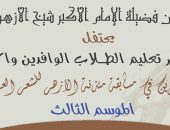 ن فضيلة الإمام الأكبر شيخ الأزهر
يحتفل
ر تعليم الطلاب الوافدين وا
ين في مسابقة مئذنة الأزهر للشعر الع
الموسم الثالث